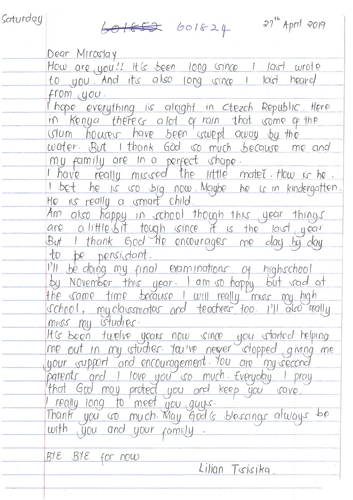 Saturday 601824 27th April 2019
Dear Miroslav
How are you!! It's been long since I last wrote
to you. And it's also long since I last heard
from you.
I hope everything is alright in Czech Republic. Here
in Kenya there's a lot of rain that some of the
slum houses have been swept away by the
water. But I thank God so much because me and
my family are in a perfect shape.
I have really missed the little matěj. How is he.
I bet he is so big now. Maybe he is in kindergatten.
He is really a smart child.
Am also happy in school though this year things
are a little bit tough since it is the last year
But I thank God He encourages me day by day
to be persistant.
I'll be doing my final examinations of highschool
by November this year. I am so happy but sad at
the same time because I will really miss my high
school, myclassmates and teachers too. I'll also really
miss my studies.
It's been twelve years now since you started helping
me out in my studies. You've never stopped giving me
your support and encouragement. You are my second
parents and I love you so much. Everyday I pray
that God may protect you and keep you save.
I really long to meet you guys.
Thank you so much. May God's blessings always be
with you and your family.
BYE BYE for now
Lilian